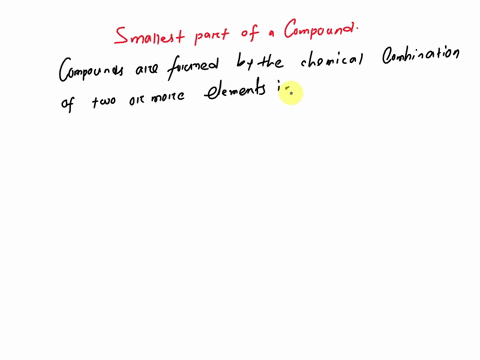 Smallest part of a Compound.
Compounds are formed by the chemical Combination
of two or more elements i